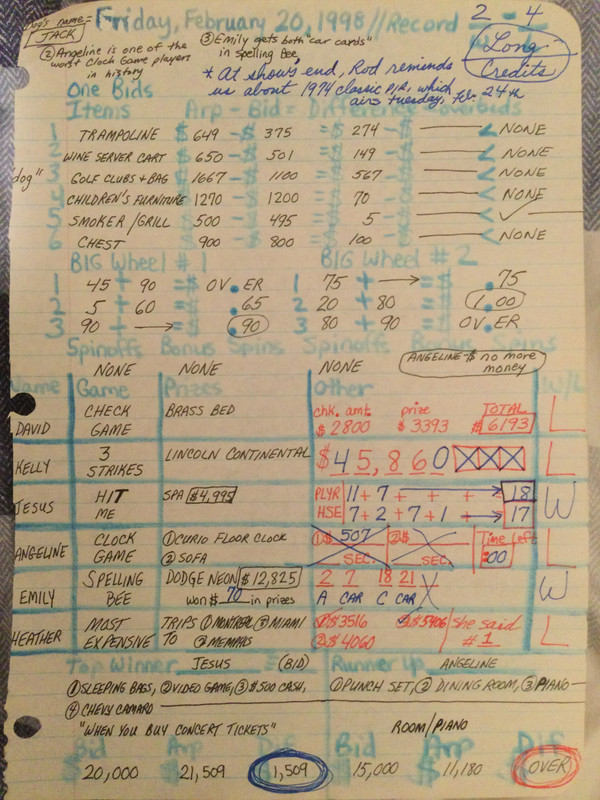 dog's name= JACK
Friday, February 20, 1998 // Record 2 - 4
② Angeline is one of the worst Clock Game players in history
③ Emily gets both "car cards" in Spelling Bee
Long Credits
* At show's end, Rod reminds us about 1974 classic PIR, which airs Tuesday, Feb. 24th
One Bids
Items Arp - Bid = Difference Overbids
1 TRAMPOLINE $ 649 - $ 375 = $ 274 - $ NONE
2 WINE SERVER CART $ 650 - $ 501 = $ 149 - $ NONE
dog" 3 GOLF CLUBS + BAG $ 1667 - $ 1100 = $ 567 - $ NONE
4 CHILDREN'S FURNITURE $ 1270 - $ 1200 = $ 70 - $ NONE
5 SMOKER/GRILL $ 500 - $ 495 = $ 5 - $ ✓
6 CHEST $ 900 - $ 800 = $ 100 - $ NONE
BIG Wheel # 1 BIG Wheel # 2
1 45 + 90 = $ OV.ER 1 75 + → = $ .75
2 5 + 60 = $ .65 2 20 + 80 = $ 1.00
3 90 + → = $ .90 3 80 + 90 = $ OV.ER
Spinoffs Bonus Spins Spinoffs Bonus Spins
NONE NONE NONE ANGELINE-$ no more money
Name Game Prizes Other W/L
DAVID CHECK GAME BRASS BED chk. amt. $ 2800 prize $ 3393 TOTAL $ 6193 L
KELLY 3 STRIKES LINCOLN CONTINENTAL $ 45,860 X X X L
JESUS HIT ME SPA $4,995 PLYR 11 + 7 + + → 18 W
HSE 7 + 2 + 7 + 1 → 17
ANGELINE CLOCK GAME ① CURIO FLOOR CLOCK ② SOFA ① $ 507 SEC. ② $ SEC. Time Left :00 L
EMILY SPELLING BEE DODGE NEON $12,825 2 7 18 21 W
won $ 70 in prizes A CAR C CAR
HEATHER MOST EXPENSIVE TRIPS TO ① MONTREAL ② MIAMI ③ MEMPHIS ① $3516 ② $4060 ③ $5406 she said #1 L
Top Winner JESUS (BID) Runner Up ANGELINE
① SLEEPING BAGS, ② VIDEO GAME, ③ $500 CASH, ① PUNCH SET, ② DINING ROOM, ③ PIANO
④ CHEVY CAMARO
"WHEN YOU BUY CONCERT TICKETS" ROOM/PIANO
Bid Arp Dif Bid Arp Dif
$ 20,000 $ 21,509 $ 1,509 $ 15,000 $ 11,180 $ OVER